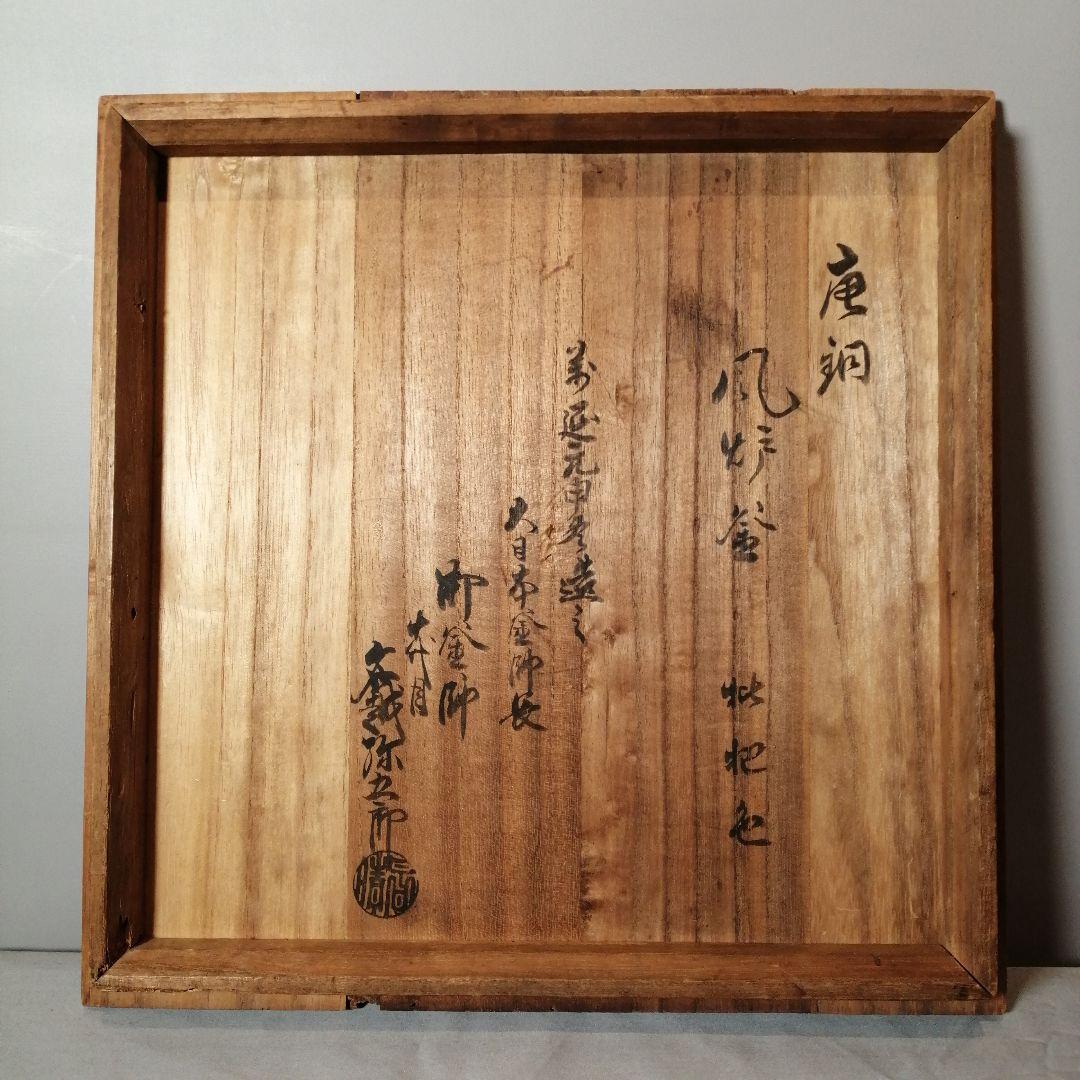 唐銅
風炉釜 枇杷色
萬延元申年造之
大日本釜師長
御釜師
代目
越弥五郎